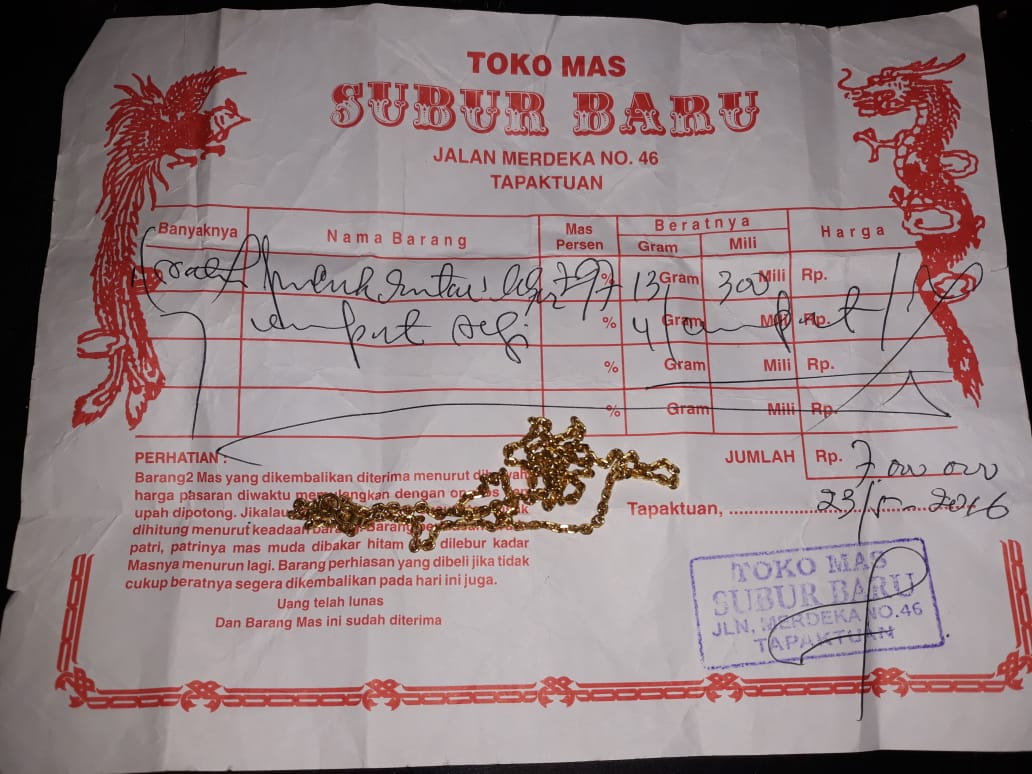 TOKO MAS
SUBUR BARU
JALAN MERDEKA NO. 46
TAPAKTUAN
Banyaknya Nama Barang Mas Persen Beratnya Harga
Gram Mili
% 13 Gram 300 Mili Rp.
empat segi % 4 Gram empat Mili Rp.
% Gram Mili Rp.
% Gram Mili Rp.
JUMLAH Rp. 7.000.000
PERHATIAN :
Barang2 Mas yang dikembalikan diterima menurut
harga pasaran diwaktu dengan
upah dipotong. Jikalau
dihitung menurut keadaan
patri, patrinya mas muda dibakar hitam dilebur kadar
Masnya menurun lagi. Barang perhiasan yang dibeli jika tidak
cukup beratnya segera dikembalikan pada hari ini juga.
Uang telah lunas
Dan Barang Mas ini sudah diterima
Tapaktuan, 23/5-2016
TOKO MAS
SUBUR BARU
JLN. MERDEKA NO.46
TAPAKTUAN